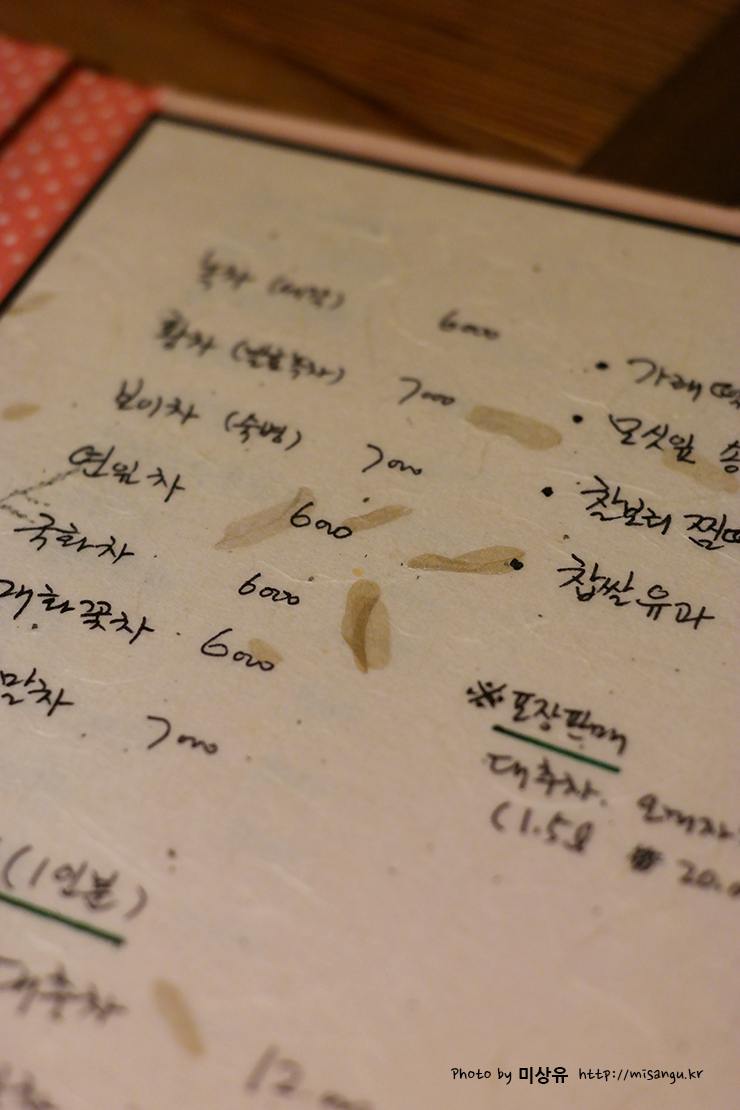 녹차 (세작) 6000
황차 (발효녹차) 7000
보이차 (숙병) 7000
연잎차 6000
국화차 6000
매화꽃차 6000
말차 7000
(1인분)
대추차
12.000
• 가래떡
• 모싯잎 송
• 찰보리 찜떡
• 찹쌀유과
※ 포장판매
대추차. 오미자
(1.5ℓ ₩ 20.0
Photo by 미상유 http://misangu.kr